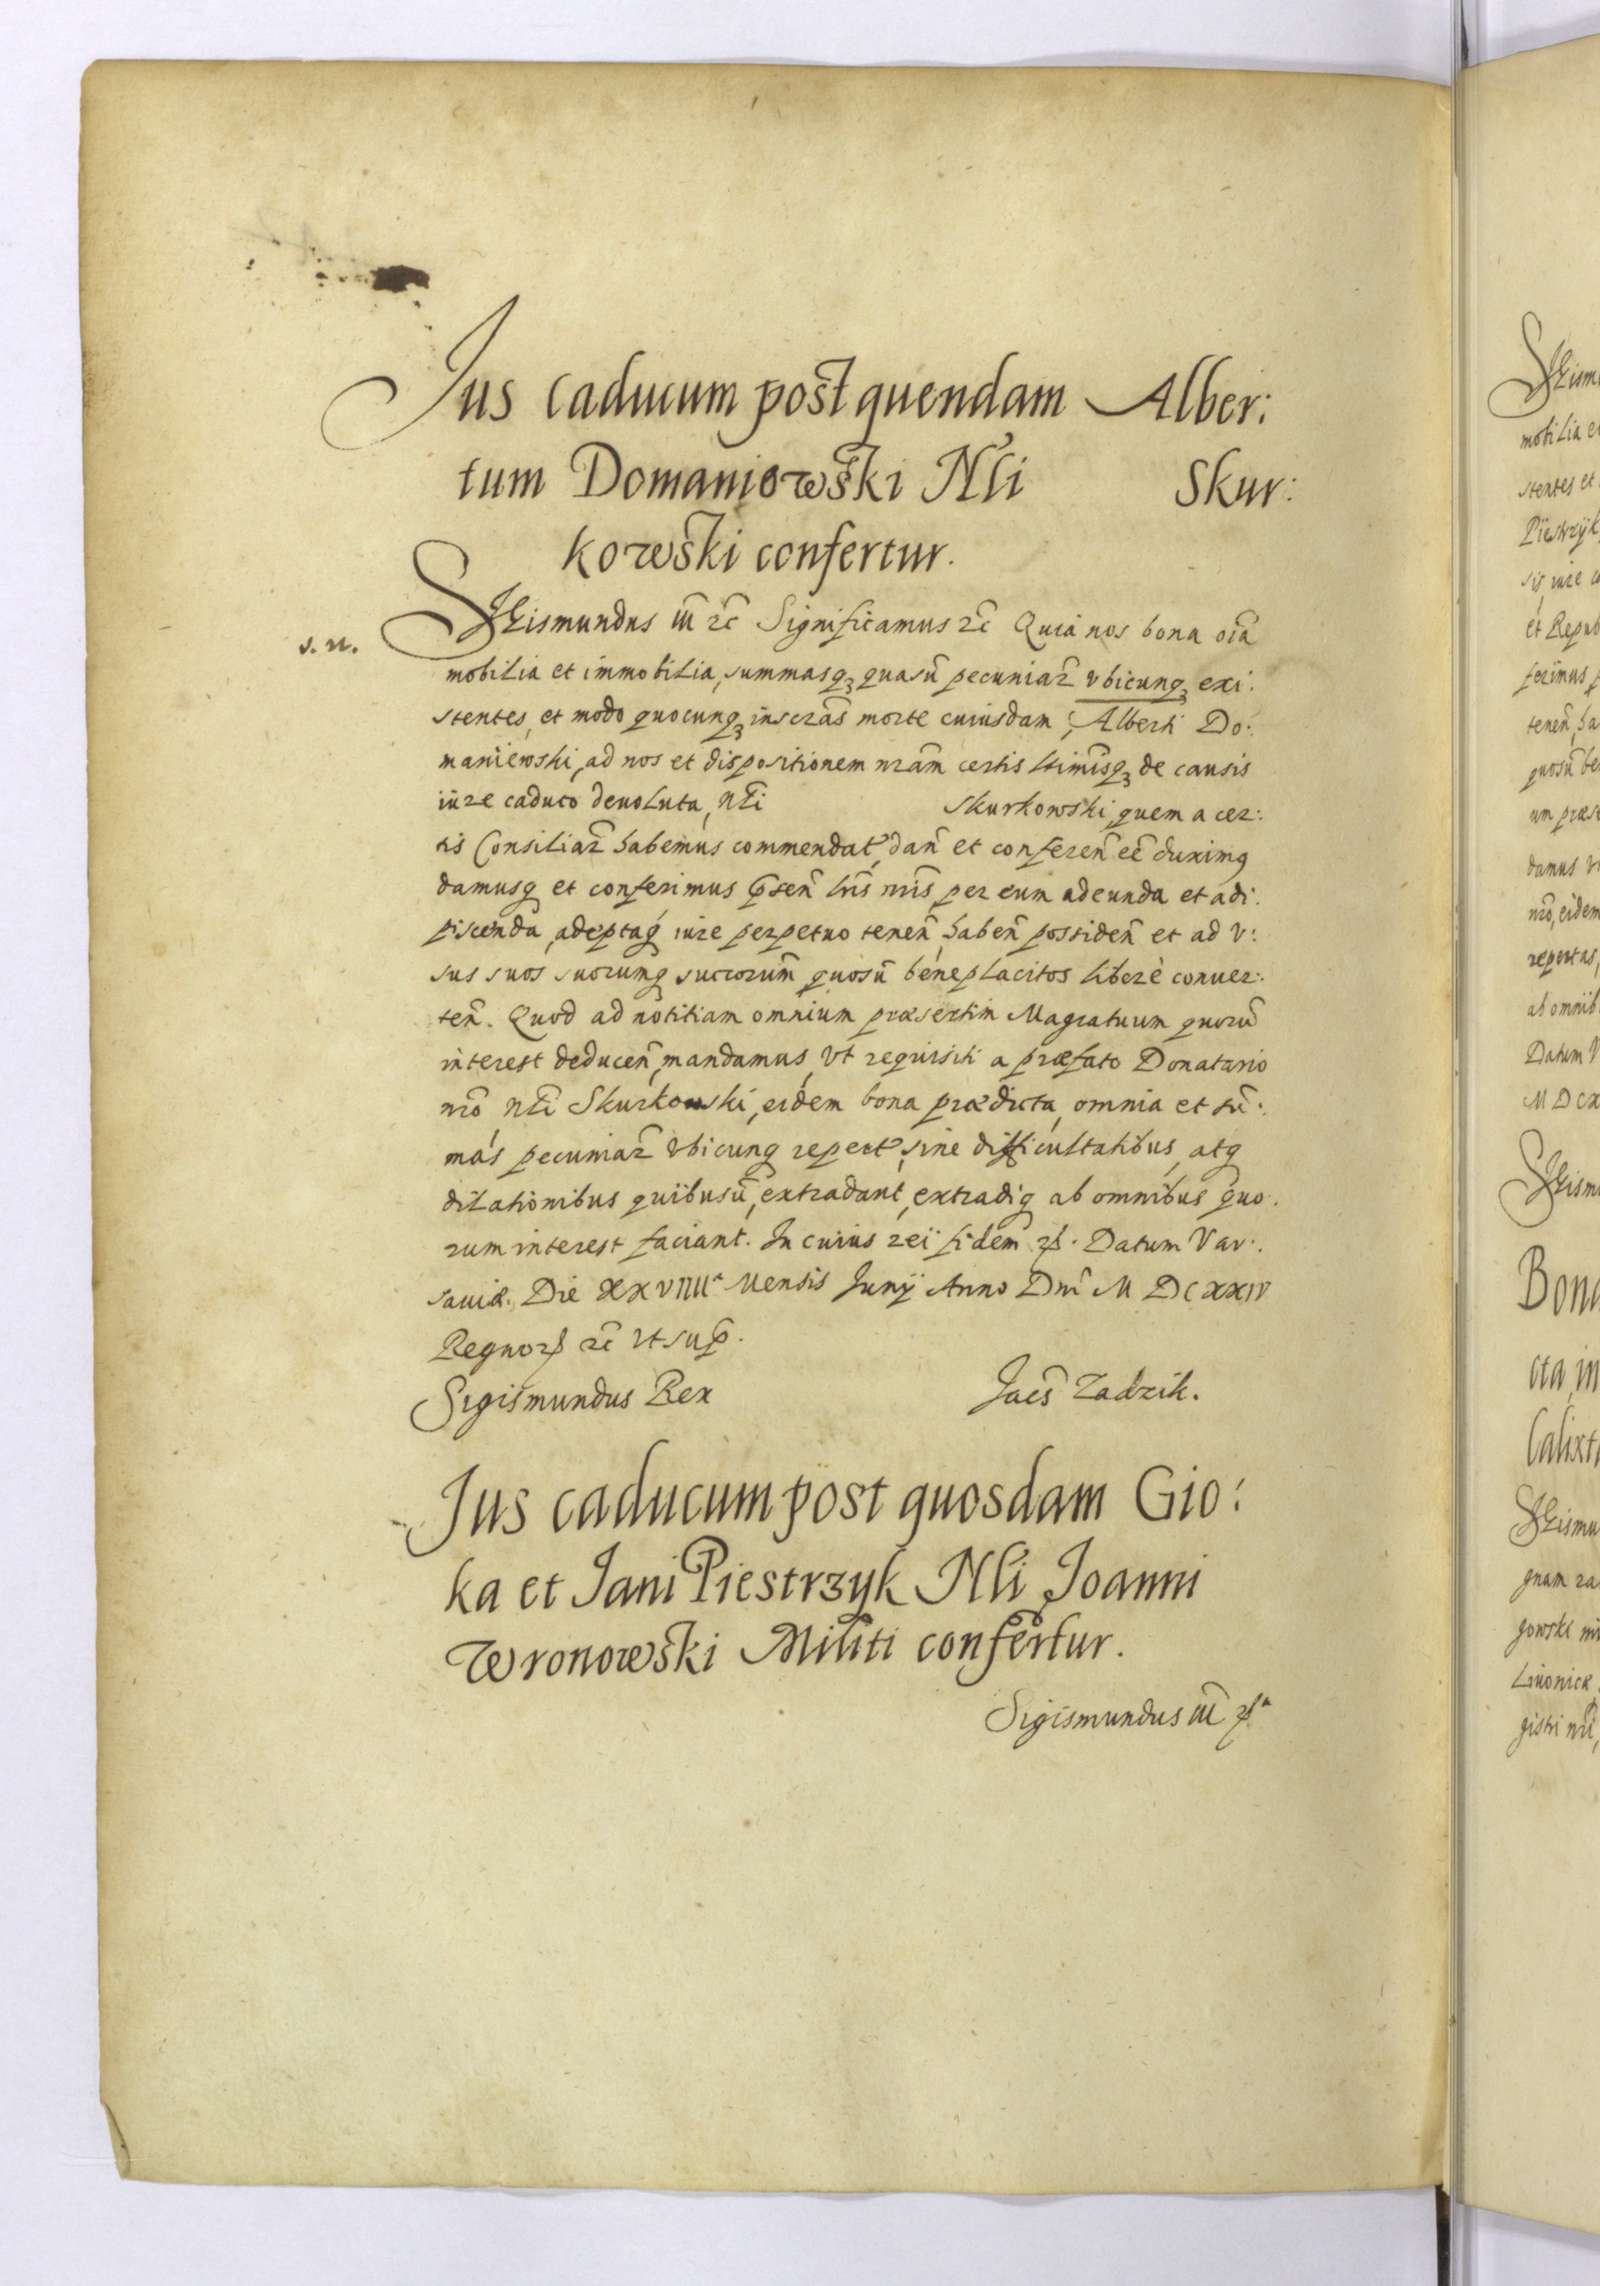 Jus caducum post quendam Alber:
tum Domaniowski Nli Skur:
kowski confertur.
s. n.
Sigismundus III rc̃ Significamus rc̃ Quia nos bona oĩa
mobilia et immobilia, summasqꝫ quasũ pecuniar̃ vbicunqꝫ exi:
stentes, et modo quocunqꝫ inscrãs morte cuiusdam Alberti Do:
maniewski, ad nos et dispositionem nr̃am certis ltimisqꝫ de causis
iure caduco deuoluta, nli Skurkowski quem a cer:
tis Consiliar̃ habemus commendat, dañ et confereñ eẽ duximq
damusq et conferimus p̃señ lr̃is nr̃is, per eum adeunda et adi:
piscenda, adeptaq́ iure perpetuo teneñ, habeñ possideñ et ad v:
sus suos suorunq succorum̃ quosũ beneplacitos liberè conuer:
teñ. Quod ad notitiam omnium præsertim Magratuum quorũ
interest deduceñ, mandamus, vt requisiti a præfato Donatario
nr̃o nli Skurkowski, eidem bona prædicta, omnia et sũ:
mas pecuniar̃ vbicunq repert, sine difficultatibus, atq
dilationibus quibusũ, extradant, extradiq ab omnibus quo:
rum interest faciant. In cuius rei fidem ꝛꝭ. Datum Var:
sauiæ. Die XXVIIII Mensis Junij Anno Dni M DCXXIV
Regnorꝭ rc̃ vt sup̃.
Sigismundus Rex Jacs̃ Zadzik.
Jus caducum post quosdam Gio:
ka et Jani Piestrzyk Nli Joanni
Wronowski Militi confertur.
Sigismundus III ꝛꝭ